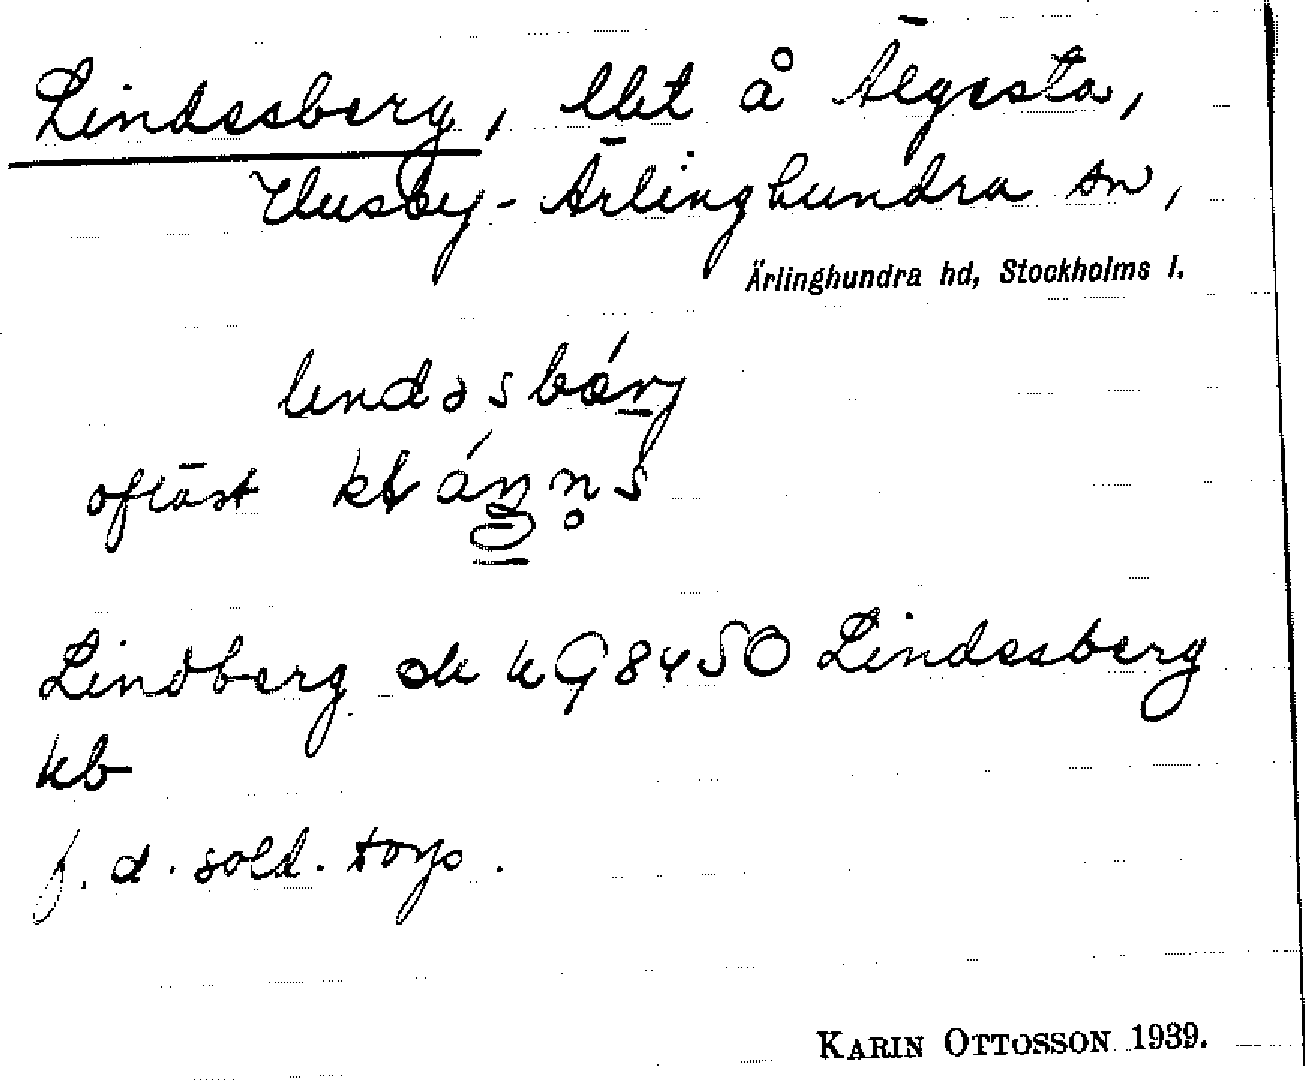 Lindesberg, lht å Älgesta,
Husby-Ärlinghundra sn,
Ärlinghundra hd, Stockholms l.
lındəsbárj
oftast
Lindberg ek k 98450 Lindesberg
kb
f. d. sold. torp.
KARIN OTTOSSON 1939.